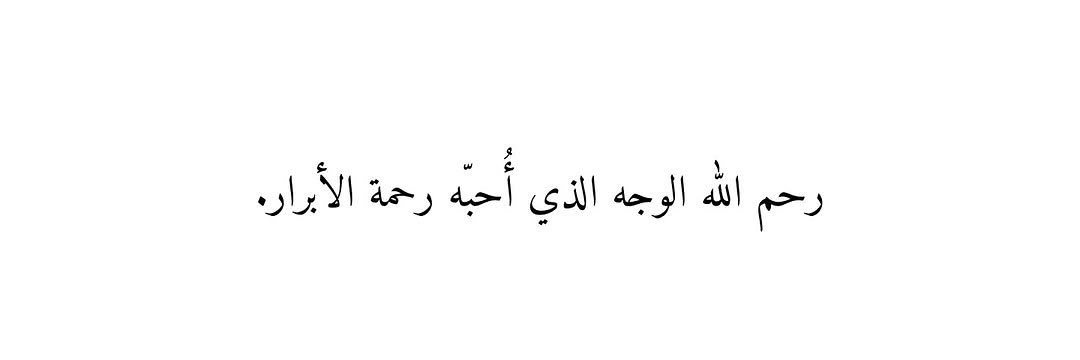 رحم الله الوجه الذي أُحبّه رحمة الأبرار.